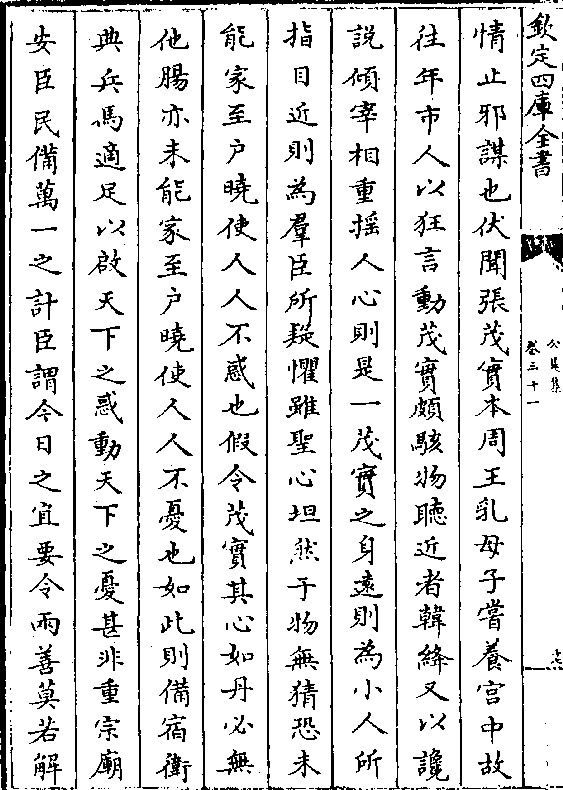 欽定四庫全書
公是集
卷三十一
情止邪謀也伏聞張茂實本周王乳母子嘗養宫中故
往年市人以狂言動茂實頗駭物聽近者韓絳又以讒
説傾宰相重揺人心則是一茂實之身逺則為小人所
指目近則為羣臣所疑懼雖聖心坦然于物無猜恐未
能家至户曉使人人不惑也假令茂實其心如丹必無
他腸亦未能家至户曉使人人不憂也如此則備宿衛
典兵馬適足以啟天下之惑動天下之憂甚非重宗廟
安臣民備萬一之計臣謂今日之宜要令兩善莫若解